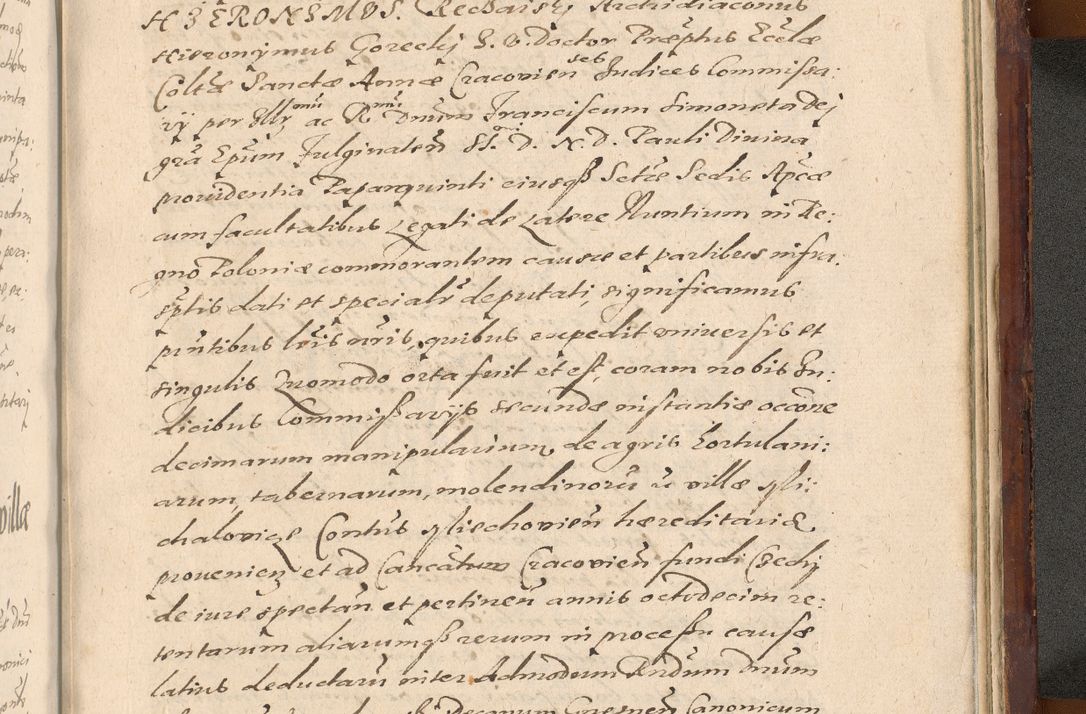 HIERONIMUS. Rechaisky Archidiaconus
Hieronymus Gorecky S. V. Doctor Præptus Ecclæ
Coltæ Sanctæ Annæ Cracovien ses Judices Commissa:
rÿ per Illr mu ac R mu Dnum Franciscum Simoneta Dej
gra Epum Fulginaten SS. D. N. D. Pauli Divina
providentia Papæ quinti eiusqꝫ Sctæ Sedis Apcæ
cum facultatibus Legati de Latere Nuntium in Re:
gno Poloniæ commorantem causæ et partibus infra:
sptis dati et specialr deputati, significamus
pntibus lris nris, quibus expedit universis et
singulis Quomodo orta fuit et est, coram nobis Ju:
dicibus Commissarijs secundæ instantiæ occone
decimarum manipularium, de agris hortulani:
arum, tabernarum, molendinoru in villæ Mi:
chalovice Contus Miechovien hæreditariæ
provenien et ad Cancātum Cracovien fundi Czechy
de iure spectan et pertinen annis octodecim re:
tentarum aliarumqꝫ rerum in processu causæ
latius deductaru inter Admodum Rndum Dnum
Decanum Gnesnen Canonicum